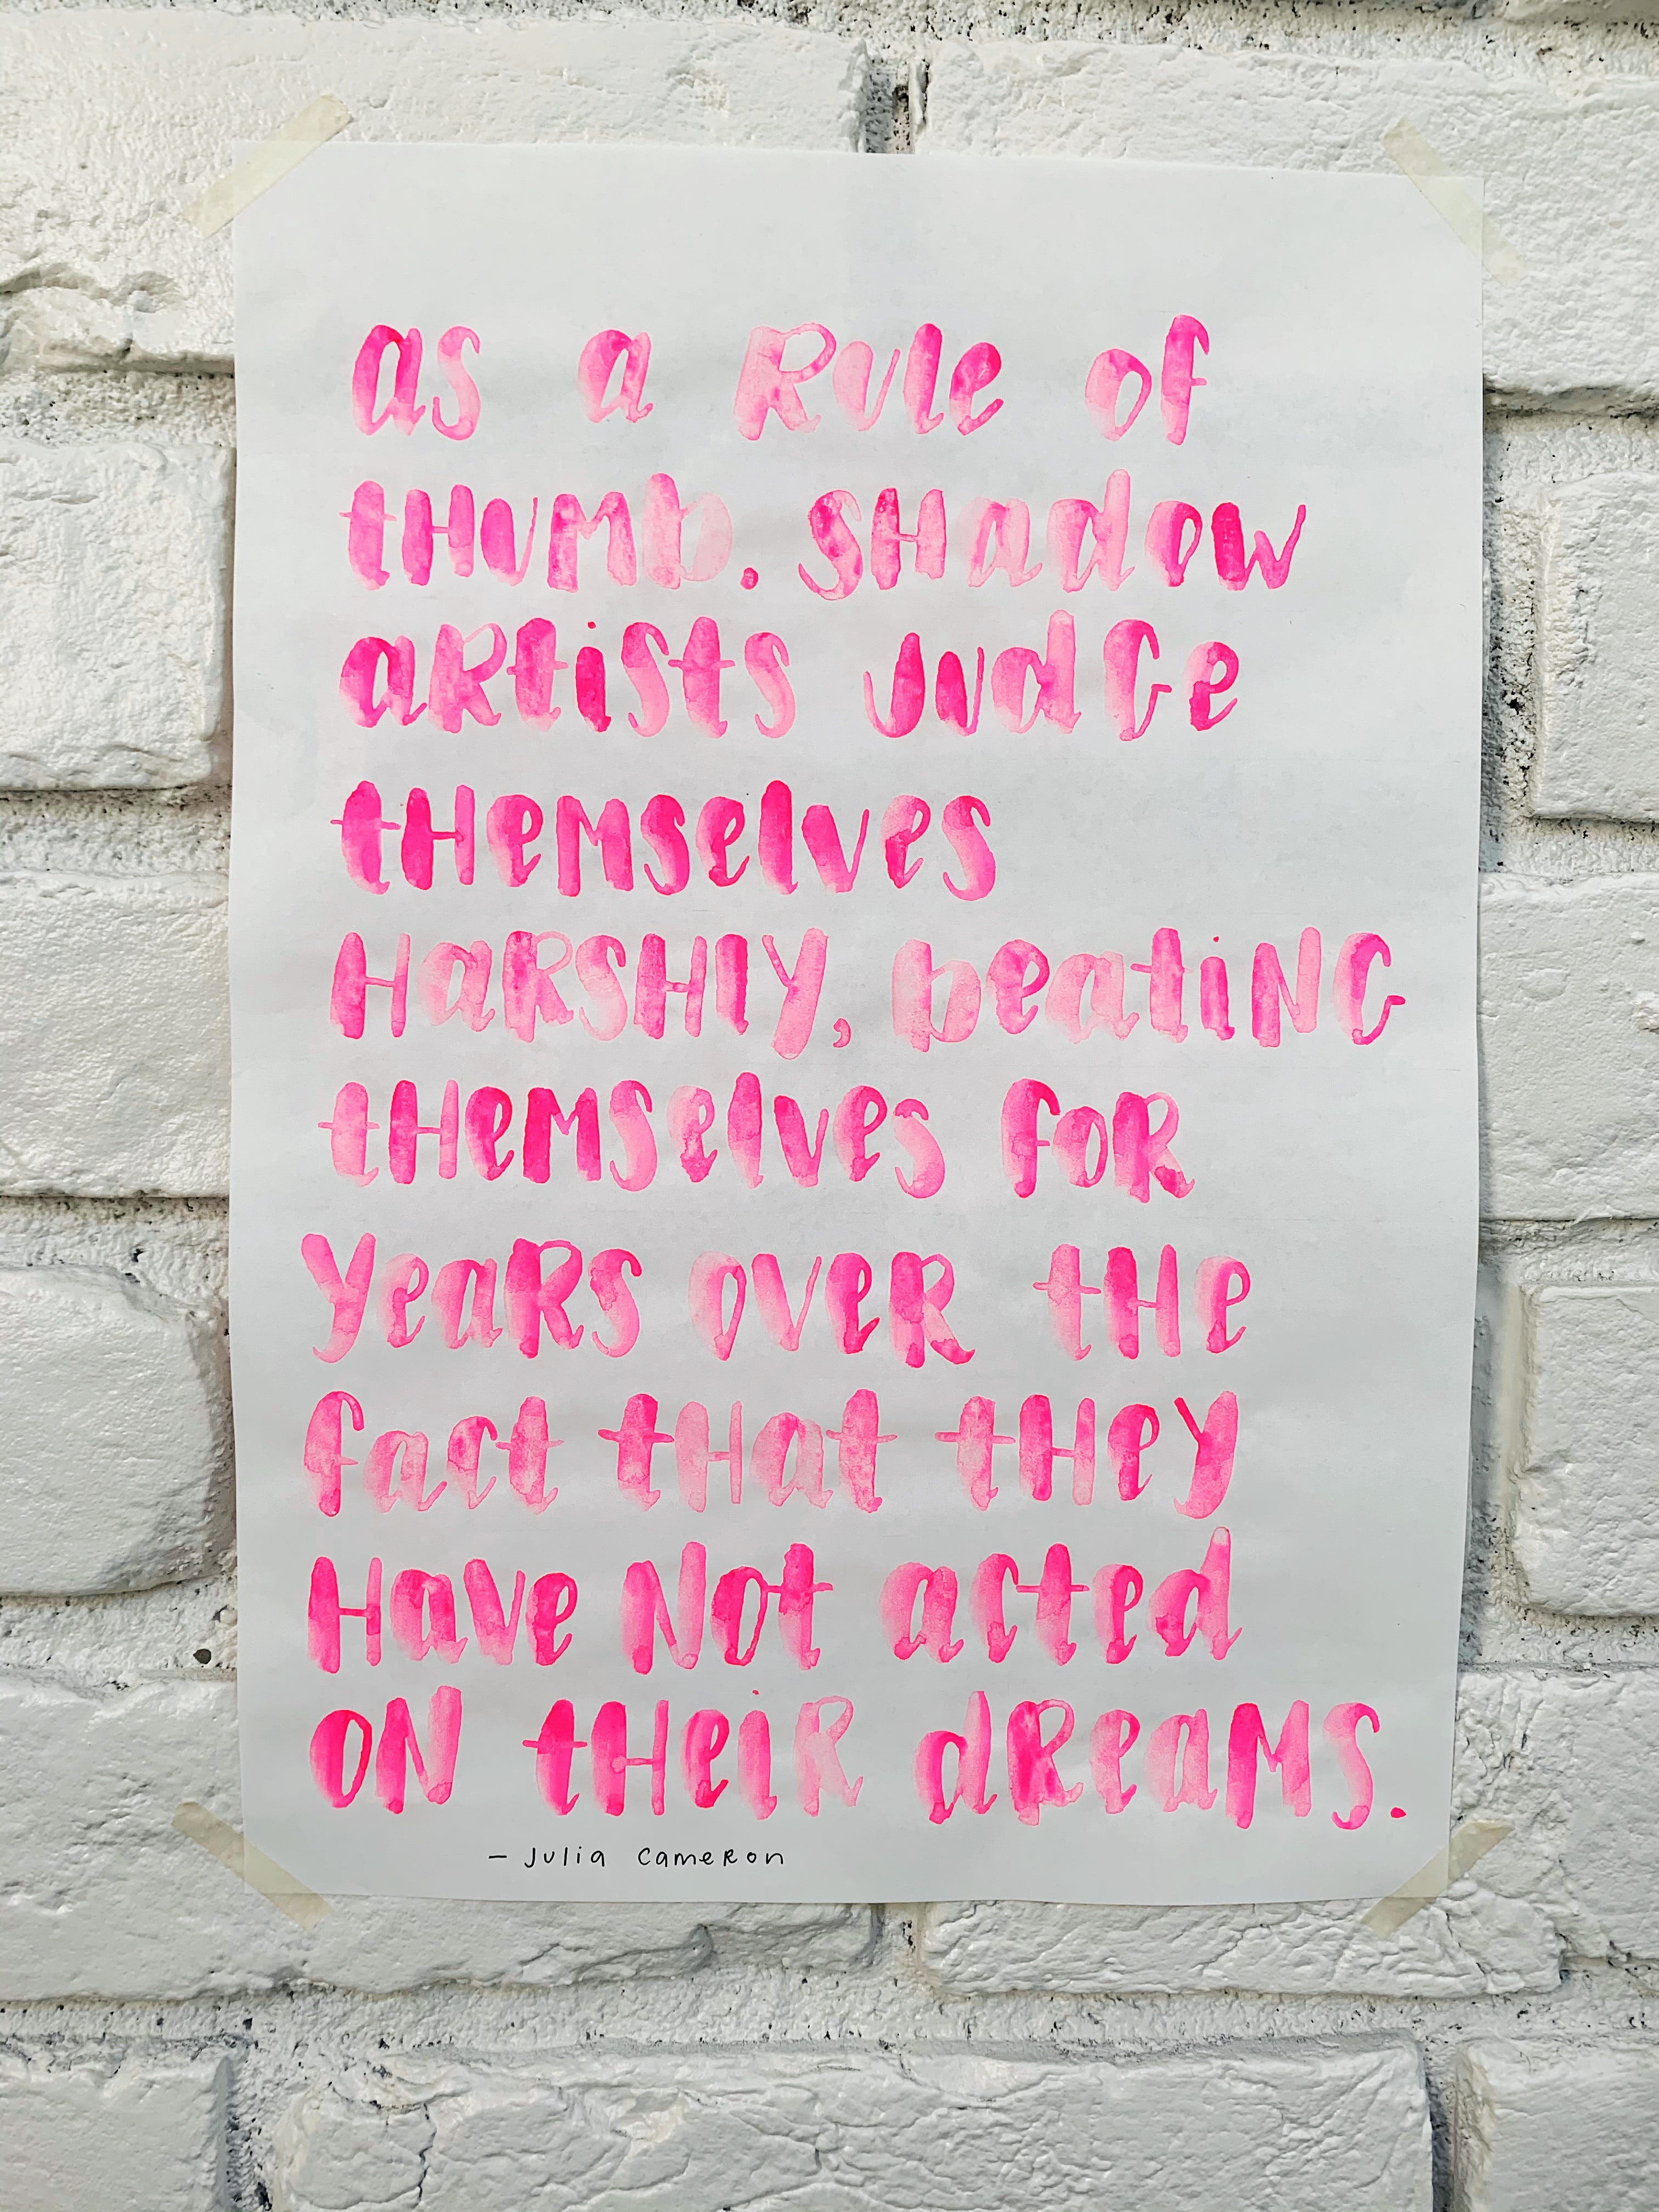 as a Rule of
tHUMb. SHadow
aRtists JUdGe
tHeMselves
HaRSHlY, beatiNG
tHeMselves foR
YeaRS oveR tHe
fact tHat tHeY
Have Not acted
oN tHeiR dReaMS.
– Julia CameRon